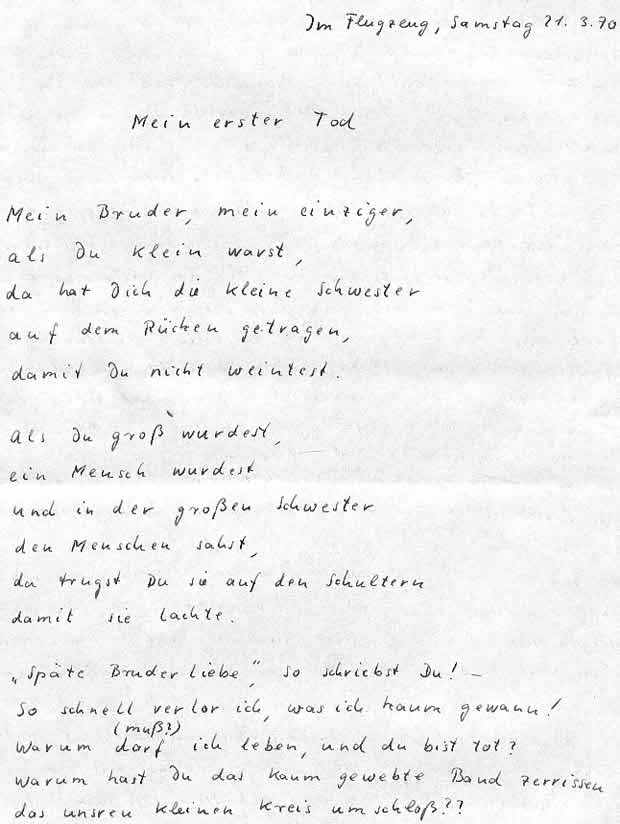 Im Flugzeug, Samstag 21. 3. 70
Mein erster Tod
Mein Bruder, mein einziger,
als Du klein warst,
da hat Dich die kleine Schwester
auf dem Rücken getragen,
damit Du nicht weintest.
Als Du groß wurdest,
ein Mensch wurdest
und in der großen Schwester
den Menschen sahst,
da trugst Du sie auf den Schultern
damit sie lachte.
„Späte Bruderliebe", so schriebst Du! –
So schnell verlor ich, was ich kaum gewann!
(muß?)
Warum darf ich leben, und du bist tot?
Warum hast Du das kaum gewebte Band zerrissen
das unsren kleinen Kreis umschloß??